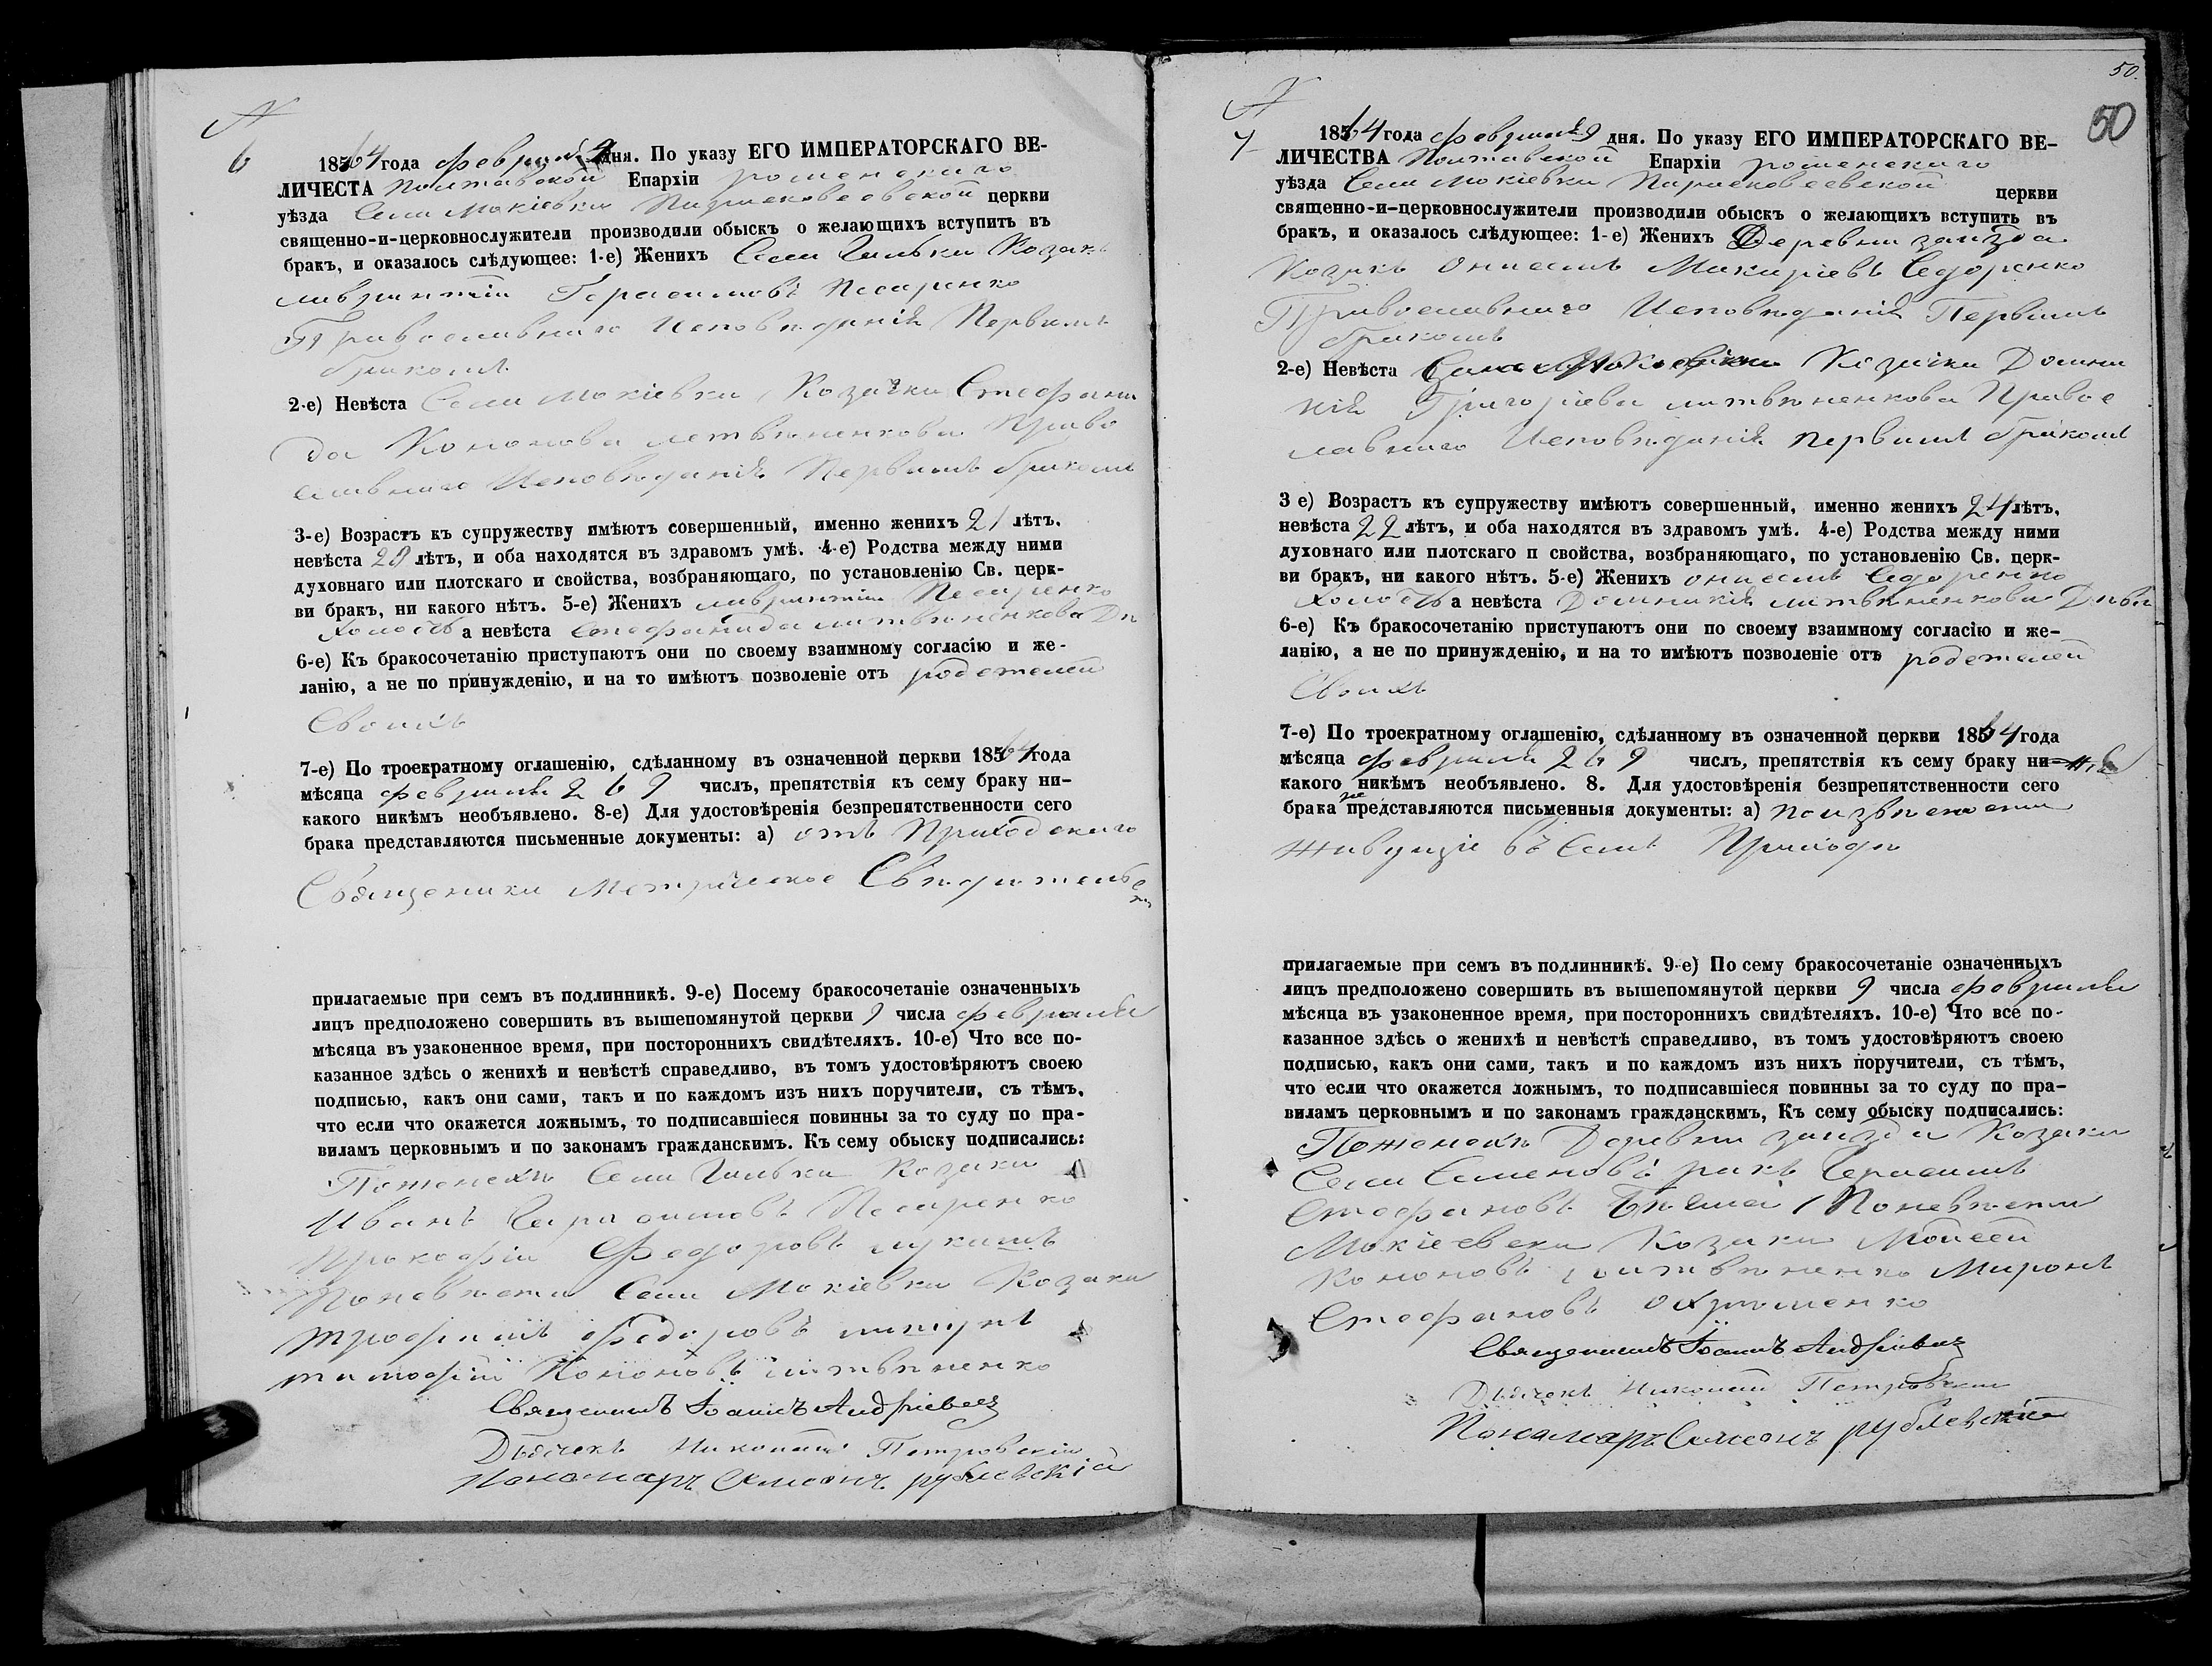 №
6
1864 года февраля 9 дня. По указу ЕГО ИМПЕРАТОРСКАГО ВЕ-
ЛИЧЕСТА Полтавской Епархіи роменскаго
уѣзда Села Мокіевки Парасковеевской церкви
священно-и-церковнослужители производили обыскъ о желающихъ вступить въ
бракъ, и оказалось слѣдующее: 1-е) Женихъ Села Гильки Козакъ
лаврентій Герасимовъ Песаренко
Православнаго Исповѣданія Первымъ
бракомъ
2-е) Невѣста Села Мокіевки Козачка Стефани
да Кононова летвѣненкова Право
славнаго Исповѣданія Первымъ бракомъ
3-е) Возрастъ къ супружеству имѣютъ совершенный, именно женихъ 21 лѣтъ,
невѣста лѣтъ, и оба находятся въ здравомъ умѣ. 4-е) Родства между ними
духовнаго или плотскаго и свойства, возбраняющаго, по установленію Св. церк-
ви бракъ, ни какого нѣтъ. 5-е) Женихъ лаврентій Песаренко
холостъ а невѣста Стефанида литвѣненкова Дѣ
6-е) Къ бракосочетанію приступаютъ они по своему взаимному согласію и же-
ланію, а не по принужденію, и на то имѣютъ позволеніе отъ родетелей
Своихъ
7-е) По троекратному оглашенію, сдѣланному въ означенной церкви 1864 года
мѣсяца февраля 2 6 9 числъ, препятствія къ сему браку ни-
какого никѣмъ необъявлено. 8-е) Для удостовѣренія безпрепятственности сего
брака представляются письменныя документы: а) отъ Приходскаго
Священика Метрическое Свѣдѣтельс
прилагаемые при семъ въ подлинникѣ. 9-е) Посему бракосочетаніе означенныхъ
лицъ предположено совершить въ вышепомянутой церкви 9 числа февраля
мѣсяца въ узаконенное время, при постороннихъ свидѣтеляхъ. 10-е) Что все по-
казанное здѣсь о женихѣ и невѣстѣ справедливо, въ томъ удостовѣряютъ своею
подписью, какъ они сами, такъ и по каждомъ изъ нихъ поручители, съ тѣмъ,
что если что окажется ложнымъ, то подписавшіеся повинны за то суду по пра-
виламъ церковнымъ и по законамъ гражданскимъ. Къ сему обыску подписались:
Поженехѣ Села Гильки Козаки
Иванъ Герасимовъ Песаренко
Прокофій Федоровъ лукашъ
Поневѣсти Села Мокіевки Козаки
трофимъ Федоровъ
тимофій Кононовъ литвѣненко
Священникъ Іоаннъ Андріевъ
Дьячекъ Николай Петровскій
Пономаръ Симеонъ рублевскій
50.
50
№
7
1864 года февраля 9 дня. По указу ЕГО ИМПЕРАТОРСКАГО ВЕ-
ЛИЧЕСТВА Полтавской Епархіи роменскаго
уѣзда Села Мокіевки Парасковеевской церкви
священно-и-церковнослужители производили обыскъ о желающихъ вступить въ
бракъ, и оказалось слѣдующее: 1-е) Женихъ Деревни заизда
Козакъ Онисимъ Макаріевъ Седоренко
Православнаго Исповѣданія Первымъ
бракомъ
2-е) Невѣста Села Мокіевки Козачка Домни
кія Григоріева литвѣненкова Правос
лавнаго Исповѣданія первымъ бракомъ
3 е) Возрастъ къ супружеству имѣютъ совершенный, именно женихъ 24 лѣтъ,
невѣста 22 лѣтъ, и оба находятся въ здравомъ умѣ. 4-е) Родства между ними
духовнаго или плотскаго п свойства, возбраняющаго, по установленію Св. церк-
ви бракъ, ни какого нѣтъ. 5-е) Женихъ онисимъ Седоренко
Холостъ а невѣста Домникія литвѣненкова Дѣва
6-е) Къ бракосочетанію приступаютъ они по своему взаимному согласію и же-
ланію, а не по принужденію, и на то имѣютъ позволеніе отъ родетелей
Своихъ
7-е) По троекратному оглашенію, сдѣланному въ означенной церкви 1864 года
мѣсяца февраля 2 6 9 числъ, препятствія къ сему браку ни-
какого никѣмъ необъявлено. 8. Для удостовѣренія безпрепятственности сего
брака не представляются письменныя документы: а) поизвѣстности
живущіе въ Семъ Приходѣ
прилагаемые при семъ въ подлинникѣ. 9-е) По сему бракосочетаніе означенныхъ
лицъ предположено совершить въ вышепомянутой церкви 9 числа февраля
мѣсяца въ узаконенное время, при постороннихъ свидѣтеляхъ. 10-е) Что все по-
казанное здѣсь о женихѣ и невѣстѣ справедливо, въ томъ удостовѣряютъ своею
подписью, какъ они сами, такъ и по каждомъ изъ нихъ поручители, съ тѣмъ,
что если что окажется ложнымъ, то подписавшіеся повинны за то суду по пра-
виламъ церковнымъ и по законамъ гражданскимъ, Къ сему обыску подписались:
Поженехѣ Деревни заизда Козаки
Семеновъ ракъ Герасимъ
Стефановъ Поневѣсти
Мокіевски Козаки Моисей
Кононовъ литвѣненко Миронъ
Стефановъ Охрименко
Священникъ Іоаннъ Андріевъ
Дьячекъ Николай Петровскій
Пономаръ Симеонъ рублевскій